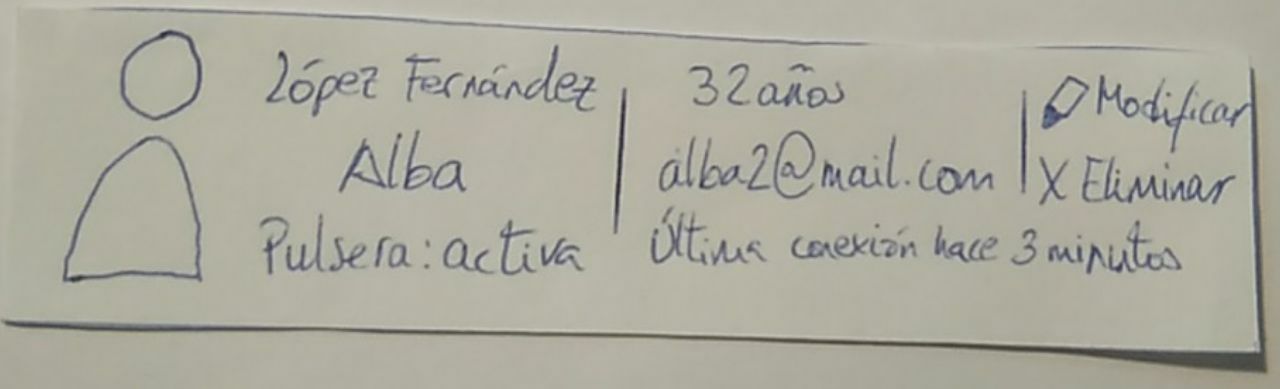 López Fernández
Alba
Pulsera: activa
32 años
alba2@mail.com
Última conexión hace 3 minutos
Modificar
X Eliminar